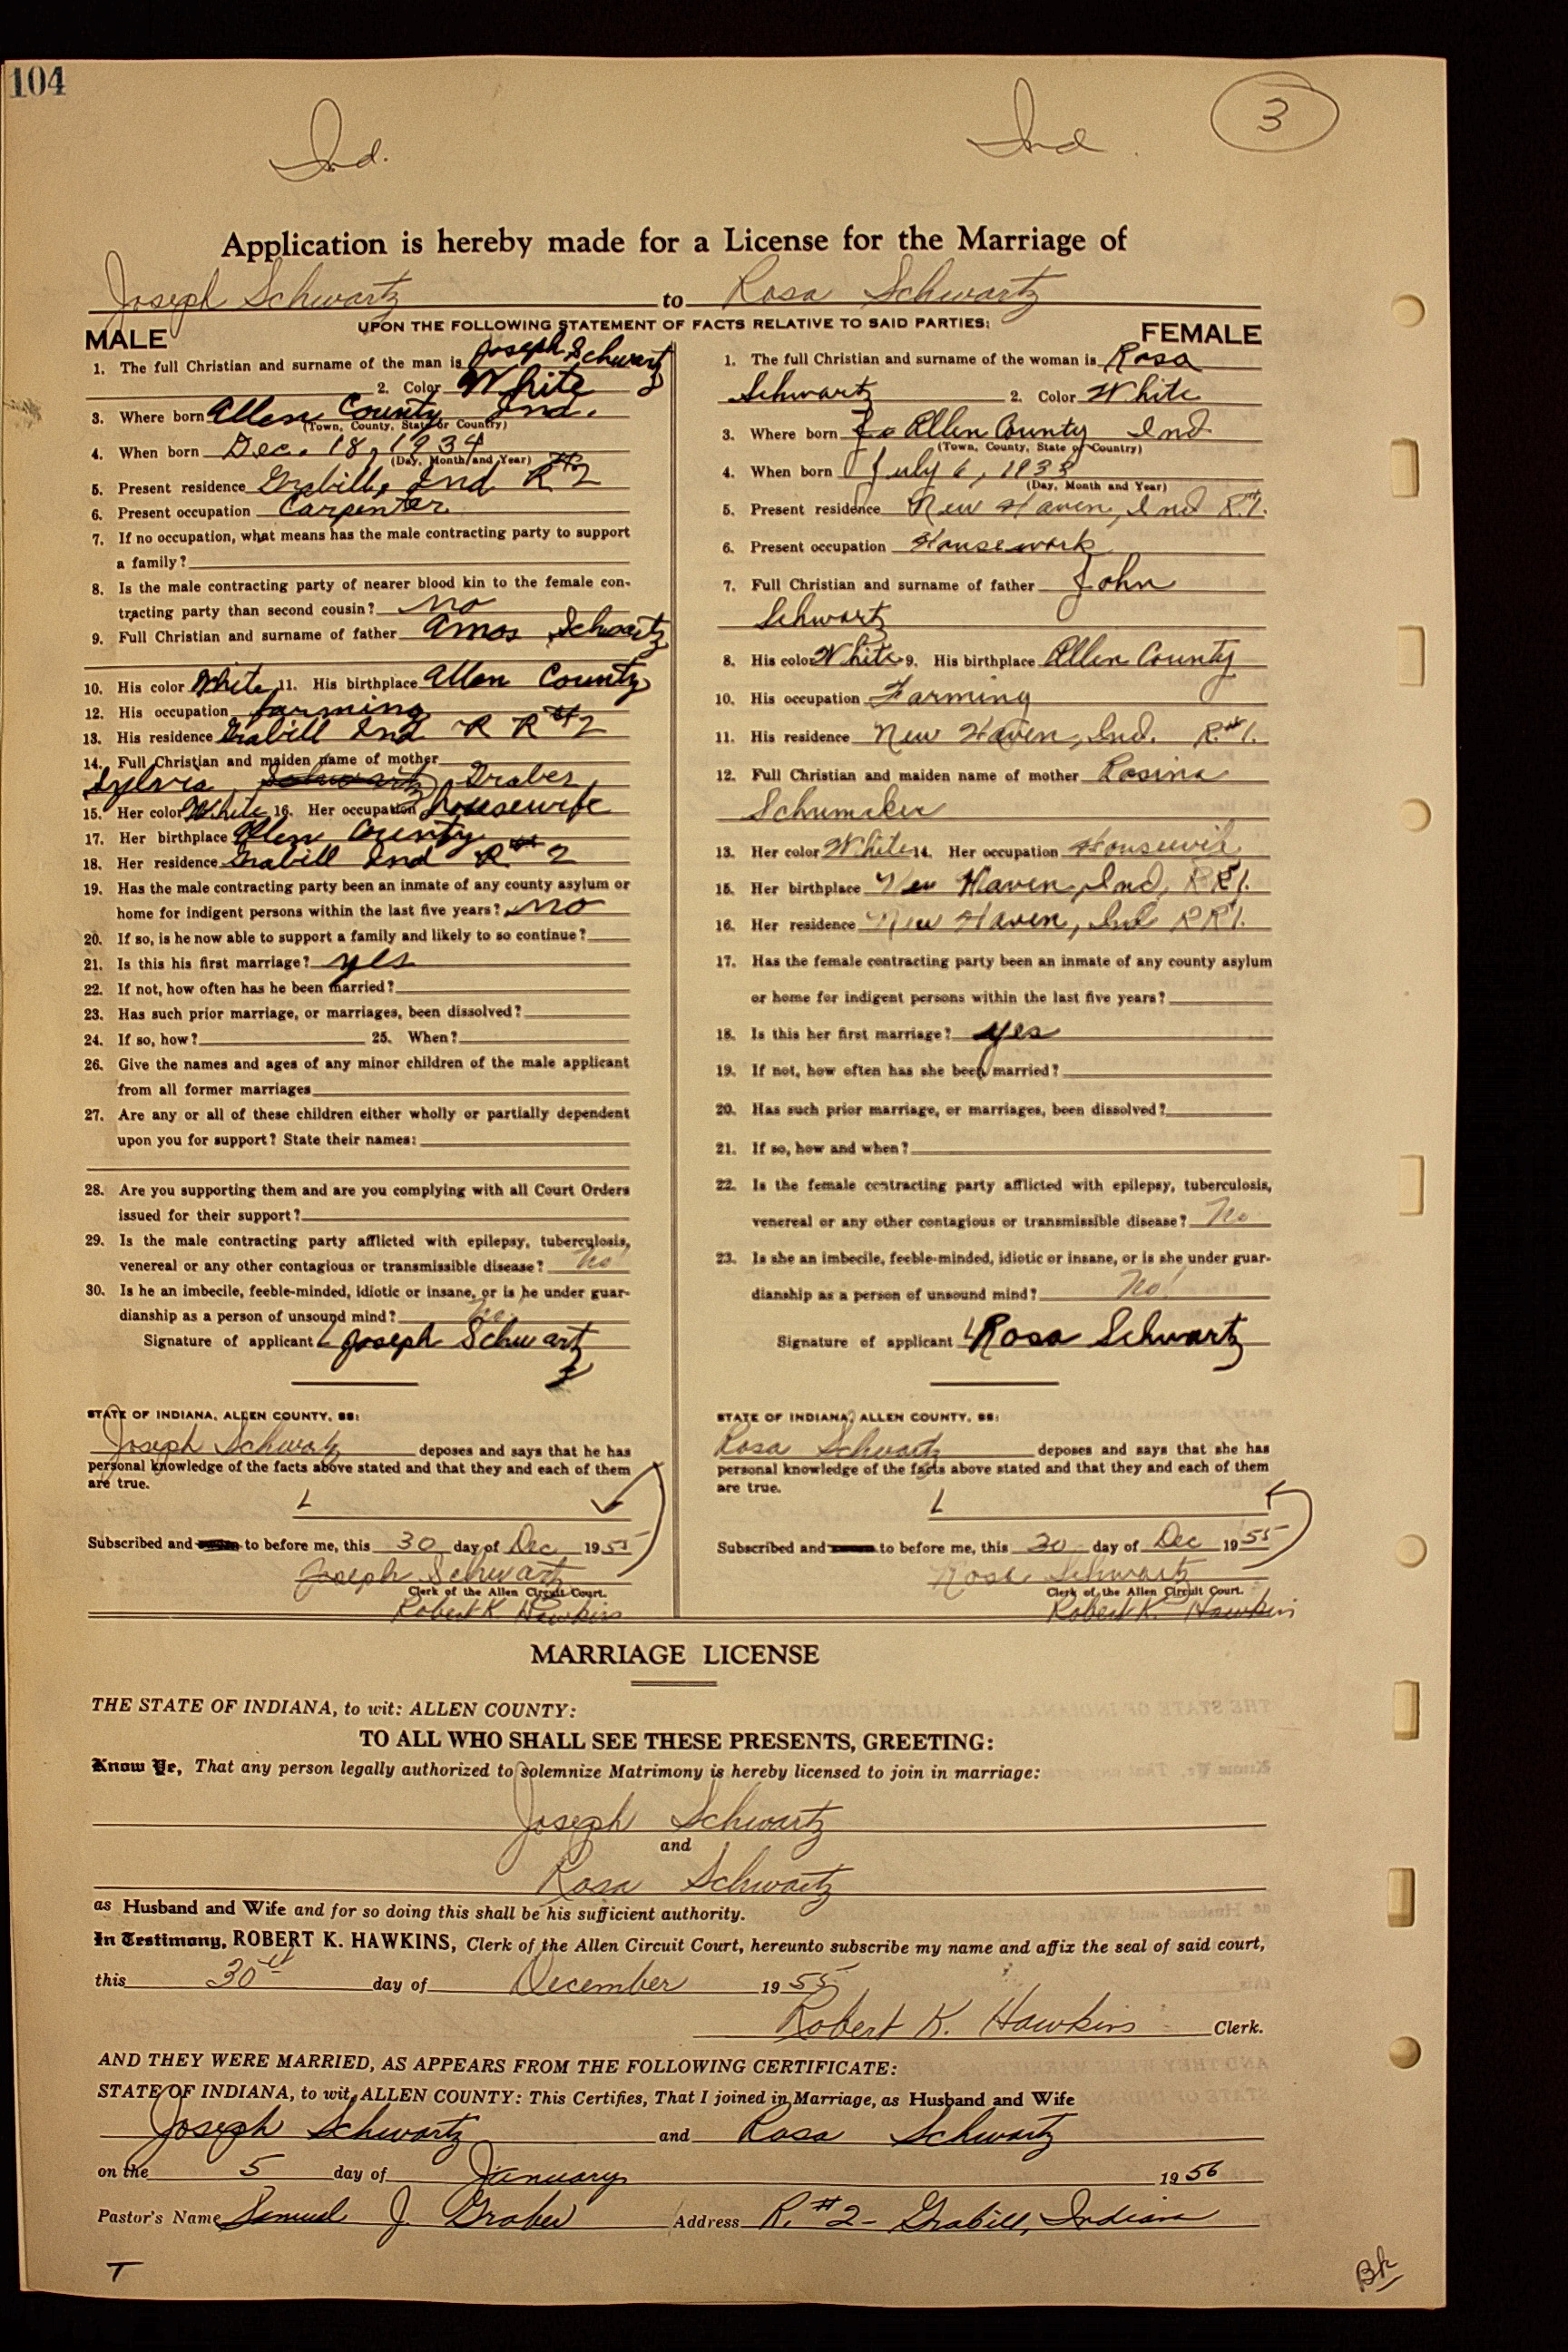 104
Ind.
Ind
3
Application is hereby made for a License for the Marriage of
Joseph Schwartz to Rosa Schwartz
UPON THE FOLLOWING STATEMENT OF FACTS RELATIVE TO SAID PARTIES:
MALE
1. The full Christian and surname of the man is Joseph Schwartz
2. Color White
3. Where born Allen County Ind.
(Town, County, State or Country)
4. When born Dec. 18, 1934
(Day, Month and Year)
5. Present residence Grabill, Ind R#2
6. Present occupation Carpenter
7. If no occupation, what means has the male contracting party to support
a family?
8. Is the male contracting party of nearer blood kin to the female con-
tracting party than second cousin? no
9. Full Christian and surname of father Amos Schwartz
10. His color White 11. His birthplace Allen County
12. His occupation farming
13. His residence Grabill Ind R R#2
14. Full Christian and maiden name of mother
Sylvia Schwartz Graber
15. Her color White 16. Her occupation housewife
17. Her birthplace Allen County
18. Her residence Grabill Ind R#2
19. Has the male contracting party been an inmate of any county asylum or
home for indigent persons within the last five years? no
20. If so, is he now able to support a family and likely to so continue?
21. Is this his first marriage? yes
22. If not, how often has he been married?
23. Has such prior marriage, or marriages, been dissolved?
24. If so, how? 25. When?
26. Give the names and ages of any minor children of the male applicant
from all former marriages
27. Are any or all of these children either wholly or partially dependent
upon you for support? State their names:
28. Are you supporting them and are you complying with all Court Orders
issued for their support?
29. Is the male contracting party afflicted with epilepsy, tuberculosis,
venereal or any other contagious or transmissible disease? No
30. Is he an imbecile, feeble-minded, idiotic or insane, or is he under guar-
dianship as a person of unsound mind? No
Signature of applicant Joseph Schwartz
STATE OF INDIANA, ALLEN COUNTY, SS:
Joseph Schwartz deposes and says that he has
personal knowledge of the facts above stated and that they and each of them
are true.
Subscribed and to before me, this 30 day of Dec 1955
Joseph Schwartz
Clerk of the Allen Circuit Court.
Robert K Hawkins
FEMALE
1. The full Christian and surname of the woman is Rosa
Schwartz 2. Color White
3. Where born Allen County Ind
(Town, County, State or Country)
4. When born July 6, 1933
(Day, Month and Year)
5. Present residence New Haven, Ind R#1.
6. Present occupation Housework
7. Full Christian and surname of father John
Schwartz
8. His color White 9. His birthplace Allen County
10. His occupation Farming
11. His residence New Haven, Ind. R#1.
12. Full Christian and maiden name of mother Rosina
Schumaker
13. Her color White 14. Her occupation Housewife
15. Her birthplace New Haven, Ind, RR1.
16. Her residence New Haven, Ind RR1.
17. Has the female contracting party been an inmate of any county asylum
or home for indigent persons within the last five years?
18. Is this her first marriage? yes
19. If not, how often has she been married?
20. Has such prior marriage, or marriages, been dissolved?
21. If so, how and when?
22. Is the female contracting party afflicted with epilepsy, tuberculosis,
venereal or any other contagious or transmissible disease? No
23. Is she an imbecile, feeble-minded, idiotic or insane, or is she under guar-
dianship as a person of unsound mind? No
Signature of applicant Rosa Schwartz
STATE OF INDIANA, ALLEN COUNTY, SS:
Rosa Schwartz deposes and says that she has
personal knowledge of the facts above stated and that they and each of them
are true.
Subscribed and to before me, this 30 day of Dec 1955
Rosa Schwartz
Clerk of the Allen Circuit Court.
Robert K. Hawkins
MARRIAGE LICENSE
THE STATE OF INDIANA, to wit: ALLEN COUNTY:
TO ALL WHO SHALL SEE THESE PRESENTS, GREETING:
Know Ye, That any person legally authorized to solemnize Matrimony is hereby licensed to join in marriage:
Joseph Schwartz
and
Rosa Schwartz
as Husband and Wife and for so doing this shall be his sufficient authority.
In Testimony, ROBERT K. HAWKINS, Clerk of the Allen Circuit Court, hereunto subscribe my name and affix the seal of said court,
this 30th day of December 1955
Robert K. Hawkins Clerk.
AND THEY WERE MARRIED, AS APPEARS FROM THE FOLLOWING CERTIFICATE:
STATE OF INDIANA, to wit, ALLEN COUNTY: This Certifies, That I joined in Marriage, as Husband and Wife
Joseph Schwartz and Rosa Schwartz
on the 5 day of January 1956
Pastor's Name Samuel J. Graber Address R. #2 - Grabill, Indiana
T
Bk